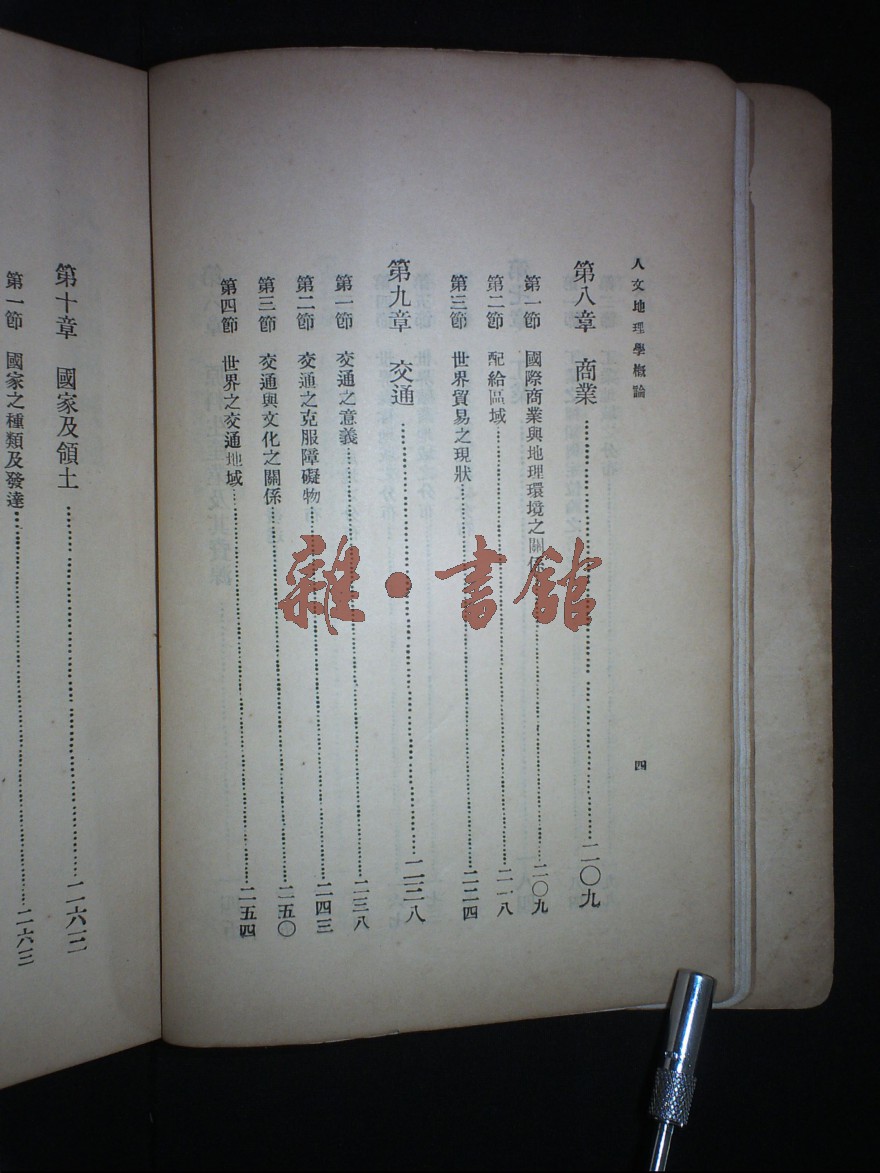 人文地理學概論
四
第八章 商業……二〇九
第一節 國際商業與地理環境之關係……二〇九
第二節 配給區域……二一八
第三節 世界貿易之現狀……二二四
第九章 交通……二三八
第一節 交通之意義……二三八
第二節 交通之克服障礙物……二四三
第三節 交通與文化之關係……二五〇
第四節 世界之交通地域……二五四
第十章 國家及領土……二六三
第一節 國家之種類及發達……二六三
雜·書館